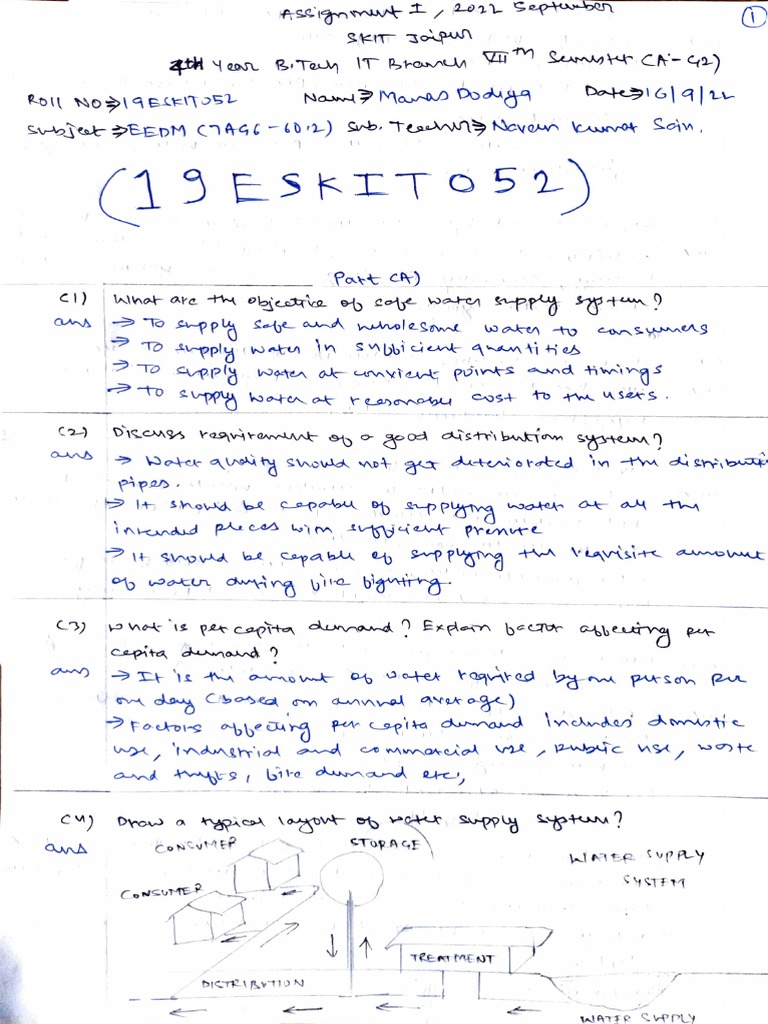 1
Assignment I, 2022 September
SKIT Jaipur
4th Year B.Tech IT Branch VIIth Semester (A-G2)
Roll No⇒19ESKIT052 Name⇒Manas Dodiya Date⇒16/9/22
Subject⇒EEDM (7AG6-60.2) Sub. Teacher⇒Naveen Kumar Sain.
(19ESKIT052)
Part (A)
(1) What are the objective of safe water supply system?
ans → To supply safe and wholesome water to consumers
→ To supply water in sufficient quantities
→ To supply water at convient points and timings
→ To supply water at reasonable cost to the users.
(2) Discuss requirement of a good distribution system?
ans → Water quality should not get deteriorated in the distributi
pipes.
→ It should be capable of supplying water at all the
intended places with sufficient pressure
→ It should be capable of supplying the requisite amount
of water during fire fighting.
(3) What is per capita demand? Explain factor affecting per
capita demand?
ans → It is the amount of water required by one person per
one day (based on annual average)
→ Factors affecting per capita demand includes domestic
use, industrial and commercial use, public use, waste
and thefts, fire demand etc,
(4) Draw a typical layout of water supply system?
ans CONSUMER STORAGE
WATER SUPPLY
SYSTEM
CONSUMER
TREATMENT
DISTRIBUTION
WATER SUPPLY